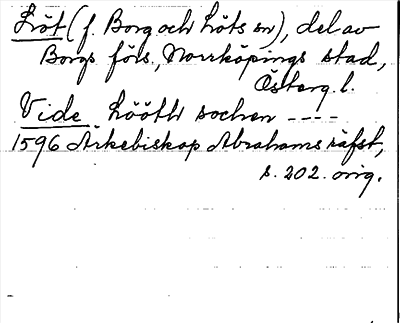 Löt (f. Borg och Löts sn), del av
Borgs förs., Norrköpings stad,
Österg. l.
Vide Lööth sochen ----
1596 Ärkebiskop Abrahams räfst,
s. 202. orig.